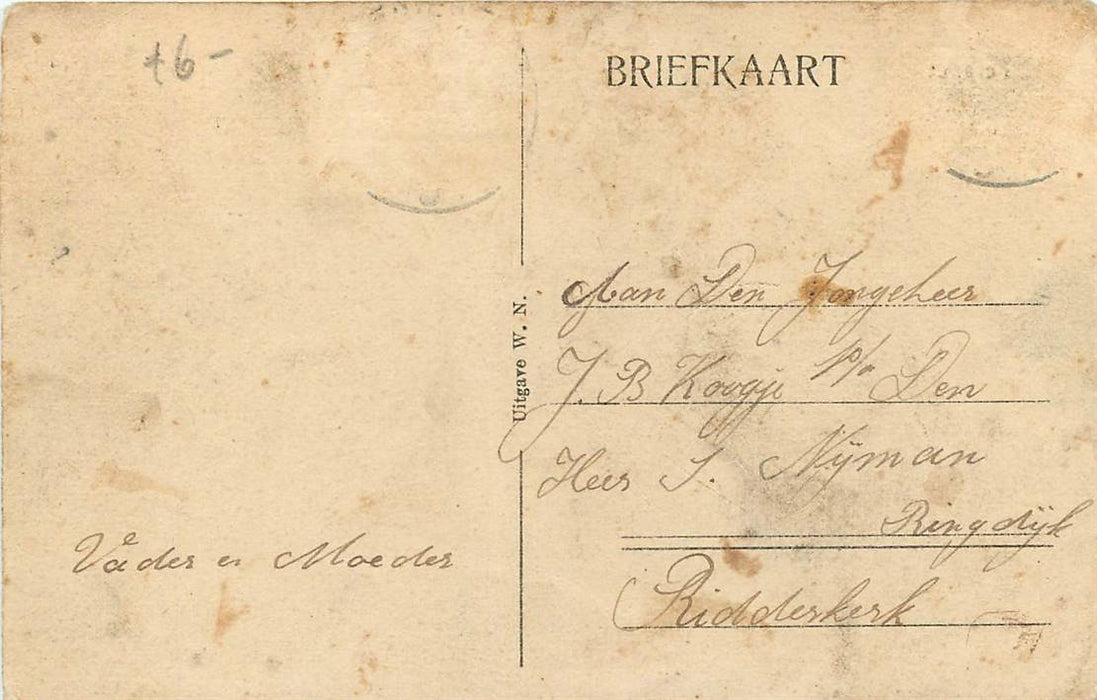 +6-
BRIEFKAART
Uitgave W. N.
Aan Den Jongeheer
J. B Koogje p/a Den
Heer S. Nijman
Ringdijk
Ridderkerk
Vader en Moeder